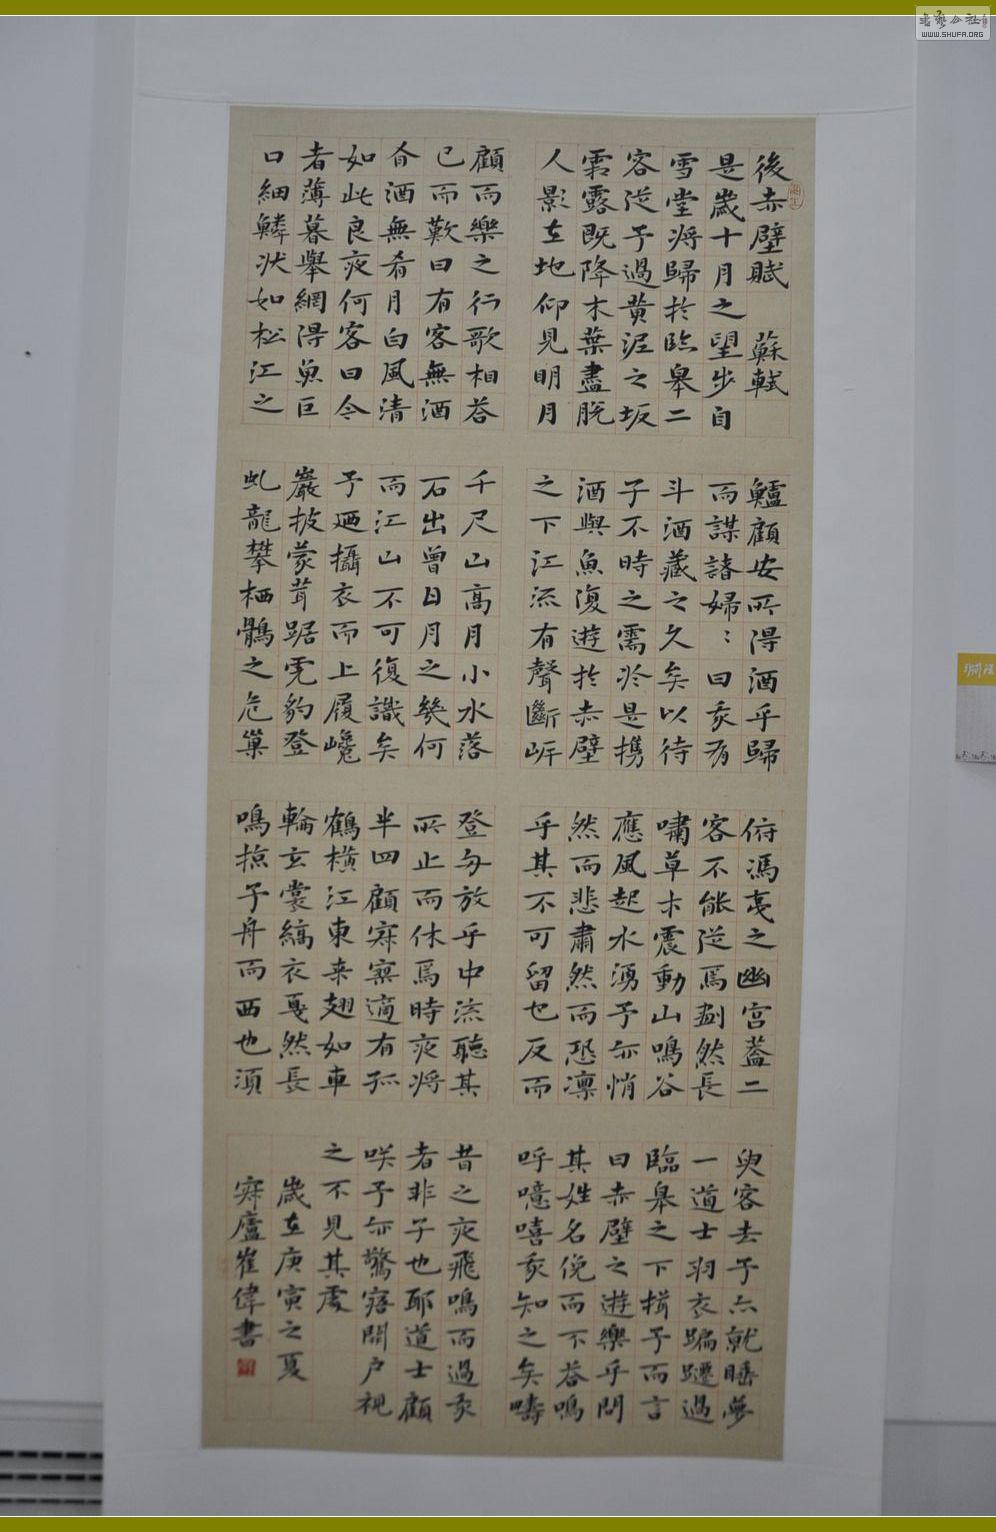 後赤壁賦 蘇軾
是歲十月之望步自
雪堂將歸於臨皋二
客從予過黃泥之坂
霜露既降木葉盡脫
人影在地仰見明月
顧而樂之行歌相荅
已而歎曰有客無酒
有酒無肴月白風清
如此良夜何客曰今
者薄暮舉網得魚巨
口細鱗狀如松江之
鱸顧安所得酒乎歸
而謀諸婦〻曰我有
斗酒藏之久矣以待
子不時之需於是携
酒與魚復遊於赤壁
之下江流有聲斷岸
千尺山高月小水落
石出曾日月之幾何
而江山不可復識矣
予迺攝衣而上履巉
巖披蒙茸踞虎豹登
虬龍攀栖鶻之危巢
俯馮夷之幽宮蓋二
客不能從焉劃然長
嘯草木震動山鳴谷
應風起水湧予亦悄
然而悲肅然而恐凜
乎其不可留也反而
登舟放乎中流聽其
所止而休焉時夜將
半四顧寂寥適有孤
鶴橫江東來翅如車
輪玄裳縞衣戛然長
鳴掠予舟而西也須
臾客去予亦就睡夢
一道士羽衣蹁躚過
臨皋之下揖予而言
曰赤壁之遊樂乎問
其姓名俛而不荅嗚
呼噫嘻我知之矣疇
昔之夜飛鳴而過我
者非子也耶道士顧
咲予亦驚寤開戶視
之不見其處
歲在庚寅之夏
寂廬崔偉書
書藝公社
WWW.SHUFA.ORG